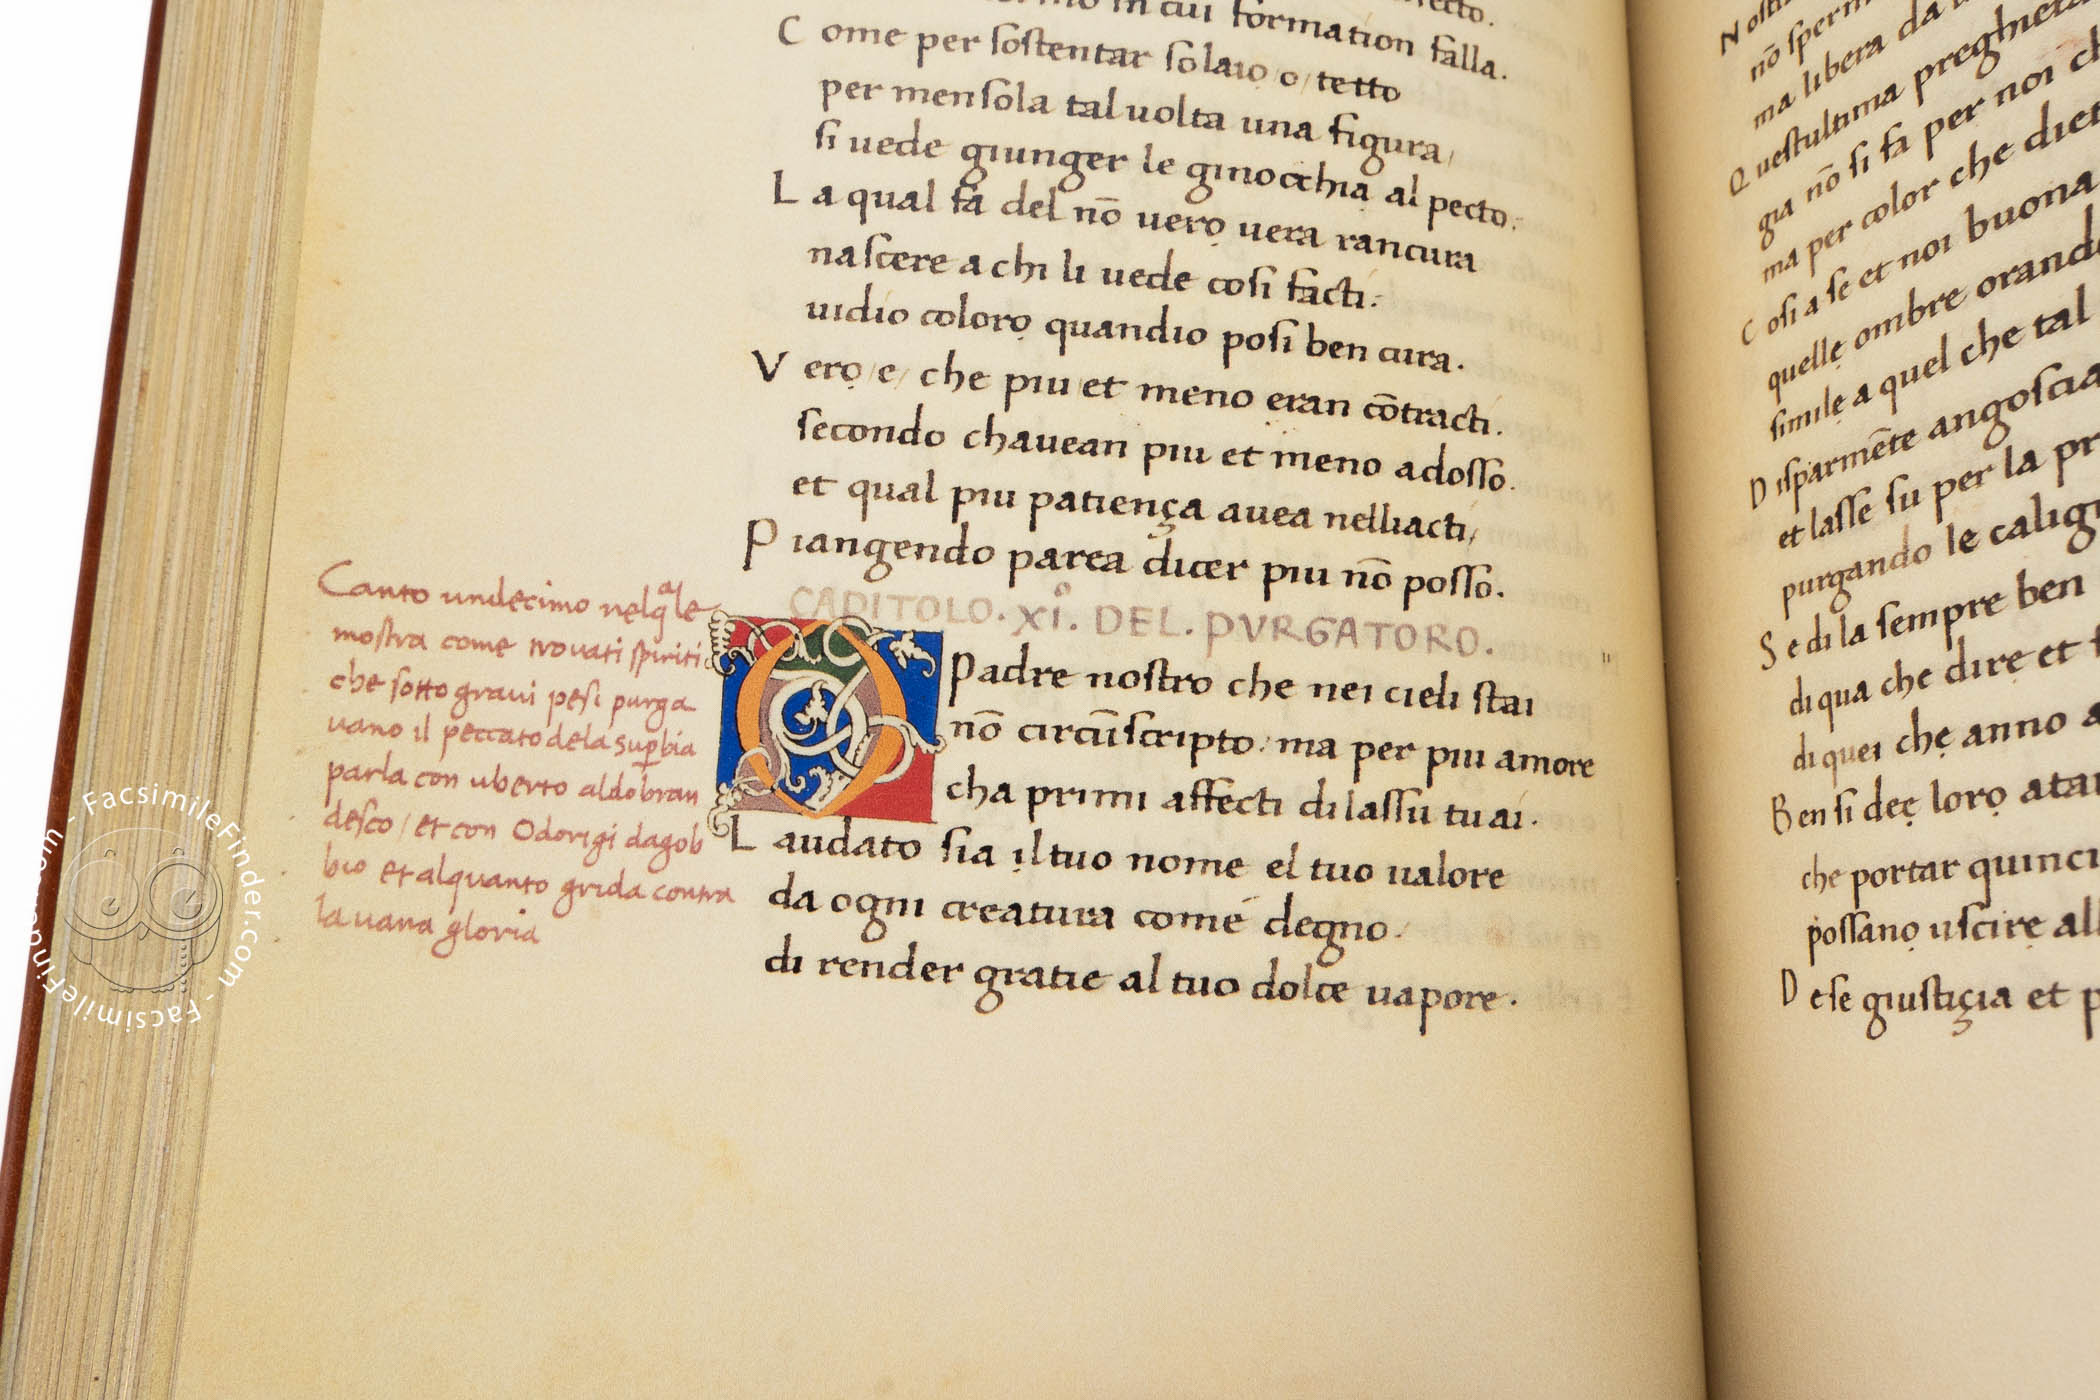 in cui formation falla.
Come per sostentar solaio/o/tetto
per mensola tal uolta una figura/
si uede giunger le ginocchia al pecto:
La qual fa del nō uero uera rancura
nascere a chi li uede cosi facti:
uidio coloro quandio posi ben cura.
Vero/e/ che piu et meno eran cōtracti.
secondo chauean piu et meno adosso.
et qual piu patiença auea nelliacti/
Piangendo parea dicer piu nō posso.
CAPITOLO. XI°. DEL. PVRGATORO.
Canto undecimo nelqᵃle
mostra come trouati spiriti
che sotto graui pesi purga
uano il peccato dela suꝑbia
parla con uberto aldobran
desco/ et con Odorigi dagob
bio et alquanto grida contra
la uana gloria
O Padre nostro che nei cieli stai
nō circūscripto: ma per piu amore
cha primi affecti di lassu tu ai.
Laudato sia il tuo nome el tuo ualore
da ogni creatura come degno.
di render gratie al tuo dolce uapore.
ma libera da
Questultima preghiera
gia nō si fa per noi
ma per color che
Cosi a se et noi buona
quelle ombre orando
simile a quel che tal
Disparmēte angoscia
et lasse su per la
purgando le
Se di la sempre ben
di qua che dire et
di quei che anno
Ben si dee loro
che portar quinci
possano uscire
De se giustiçia et
FacsimileFinder.com - FacsimileFinder.com -